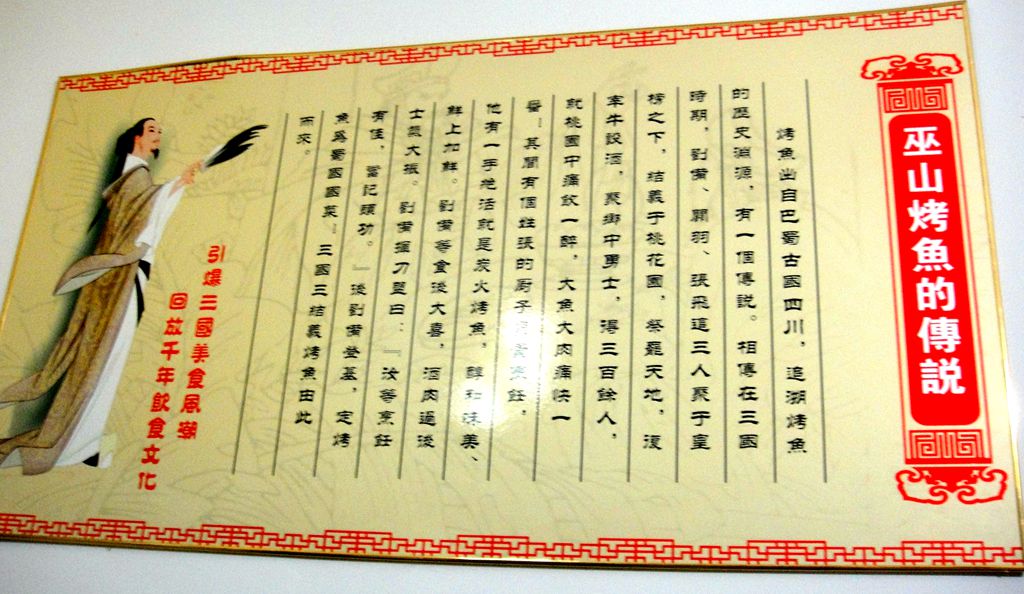 巫山烤魚的傳説
烤魚出自巴蜀古國四川，追溯烤魚
的歷史淵源，有一個傳説。相傳在三國
時期，劉備、關羽、張飛這三人聚于皇
榜之下，結義于桃花園，祭罷天地，復
宰牛設酒，聚鄉中勇士，得三百餘人，
就桃園中痛飲一醉，大魚大肉痛快一
番！其間有個姓張的厨子烹飪，
他有一手絶活就是炭火烤魚，醇和味美、
鮮上加鮮。劉備等食後大喜，酒肉過後
士氣大振。劉備握刀盟曰：『汝等烹飪
有佳，當記頭功。』後劉備登基，定烤
魚爲蜀國國菜！三國三結義烤魚由此
而來。
引爆三國美食風潮
回放千年飲食文化